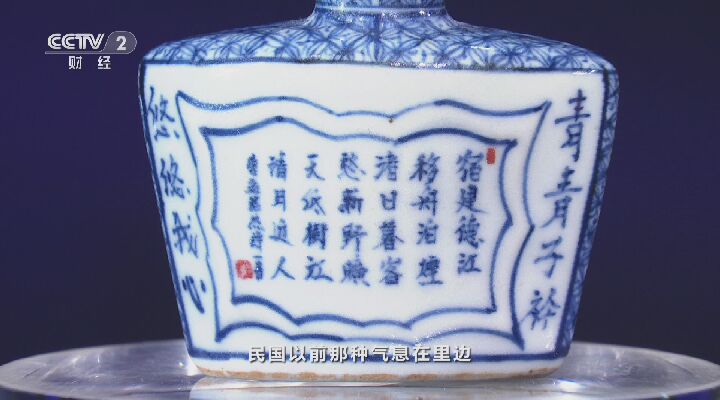 CCTV 2
财经
青青子衿
宿建德江
移舟泊煙
渚日暮客
愁新野曠
天低樹江
清月近人
悠悠我心
民国以前那种气息在里边